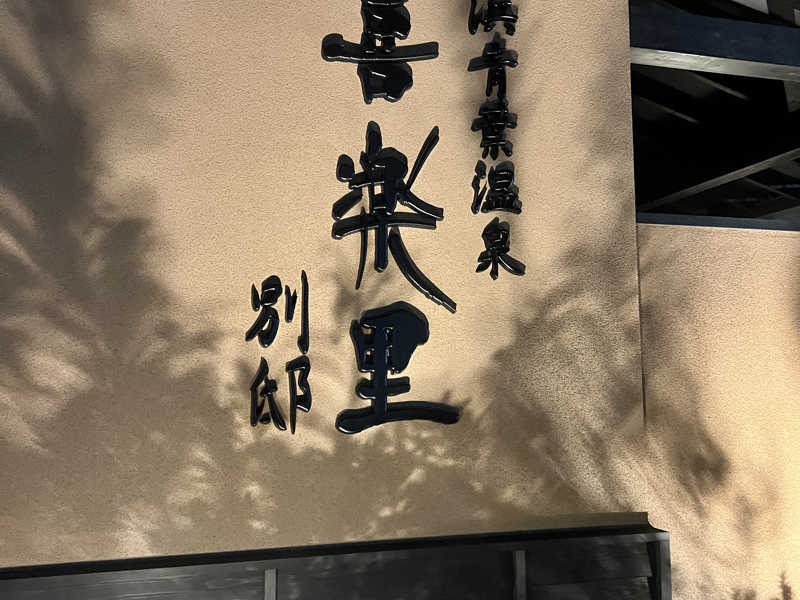 青葉温泉
喜楽里
別邸